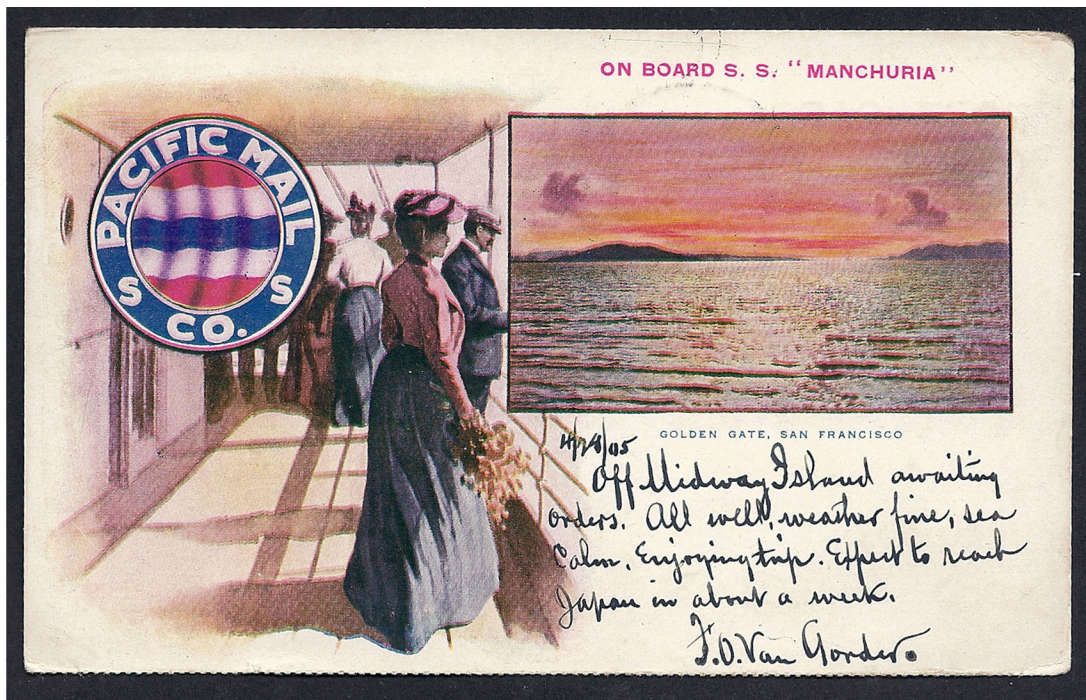 ON BOARD S. S. “MANCHURIA”
PACIFIC MAIL
S S
CO.
GOLDEN GATE, SAN FRANCISCO
4/28/05
Off Midway Island awaiting
orders. All well, weather fine, sea
Calm. Enjoying trip. Expect to reach
Japan in about a week.
F.O. Van Gorder.